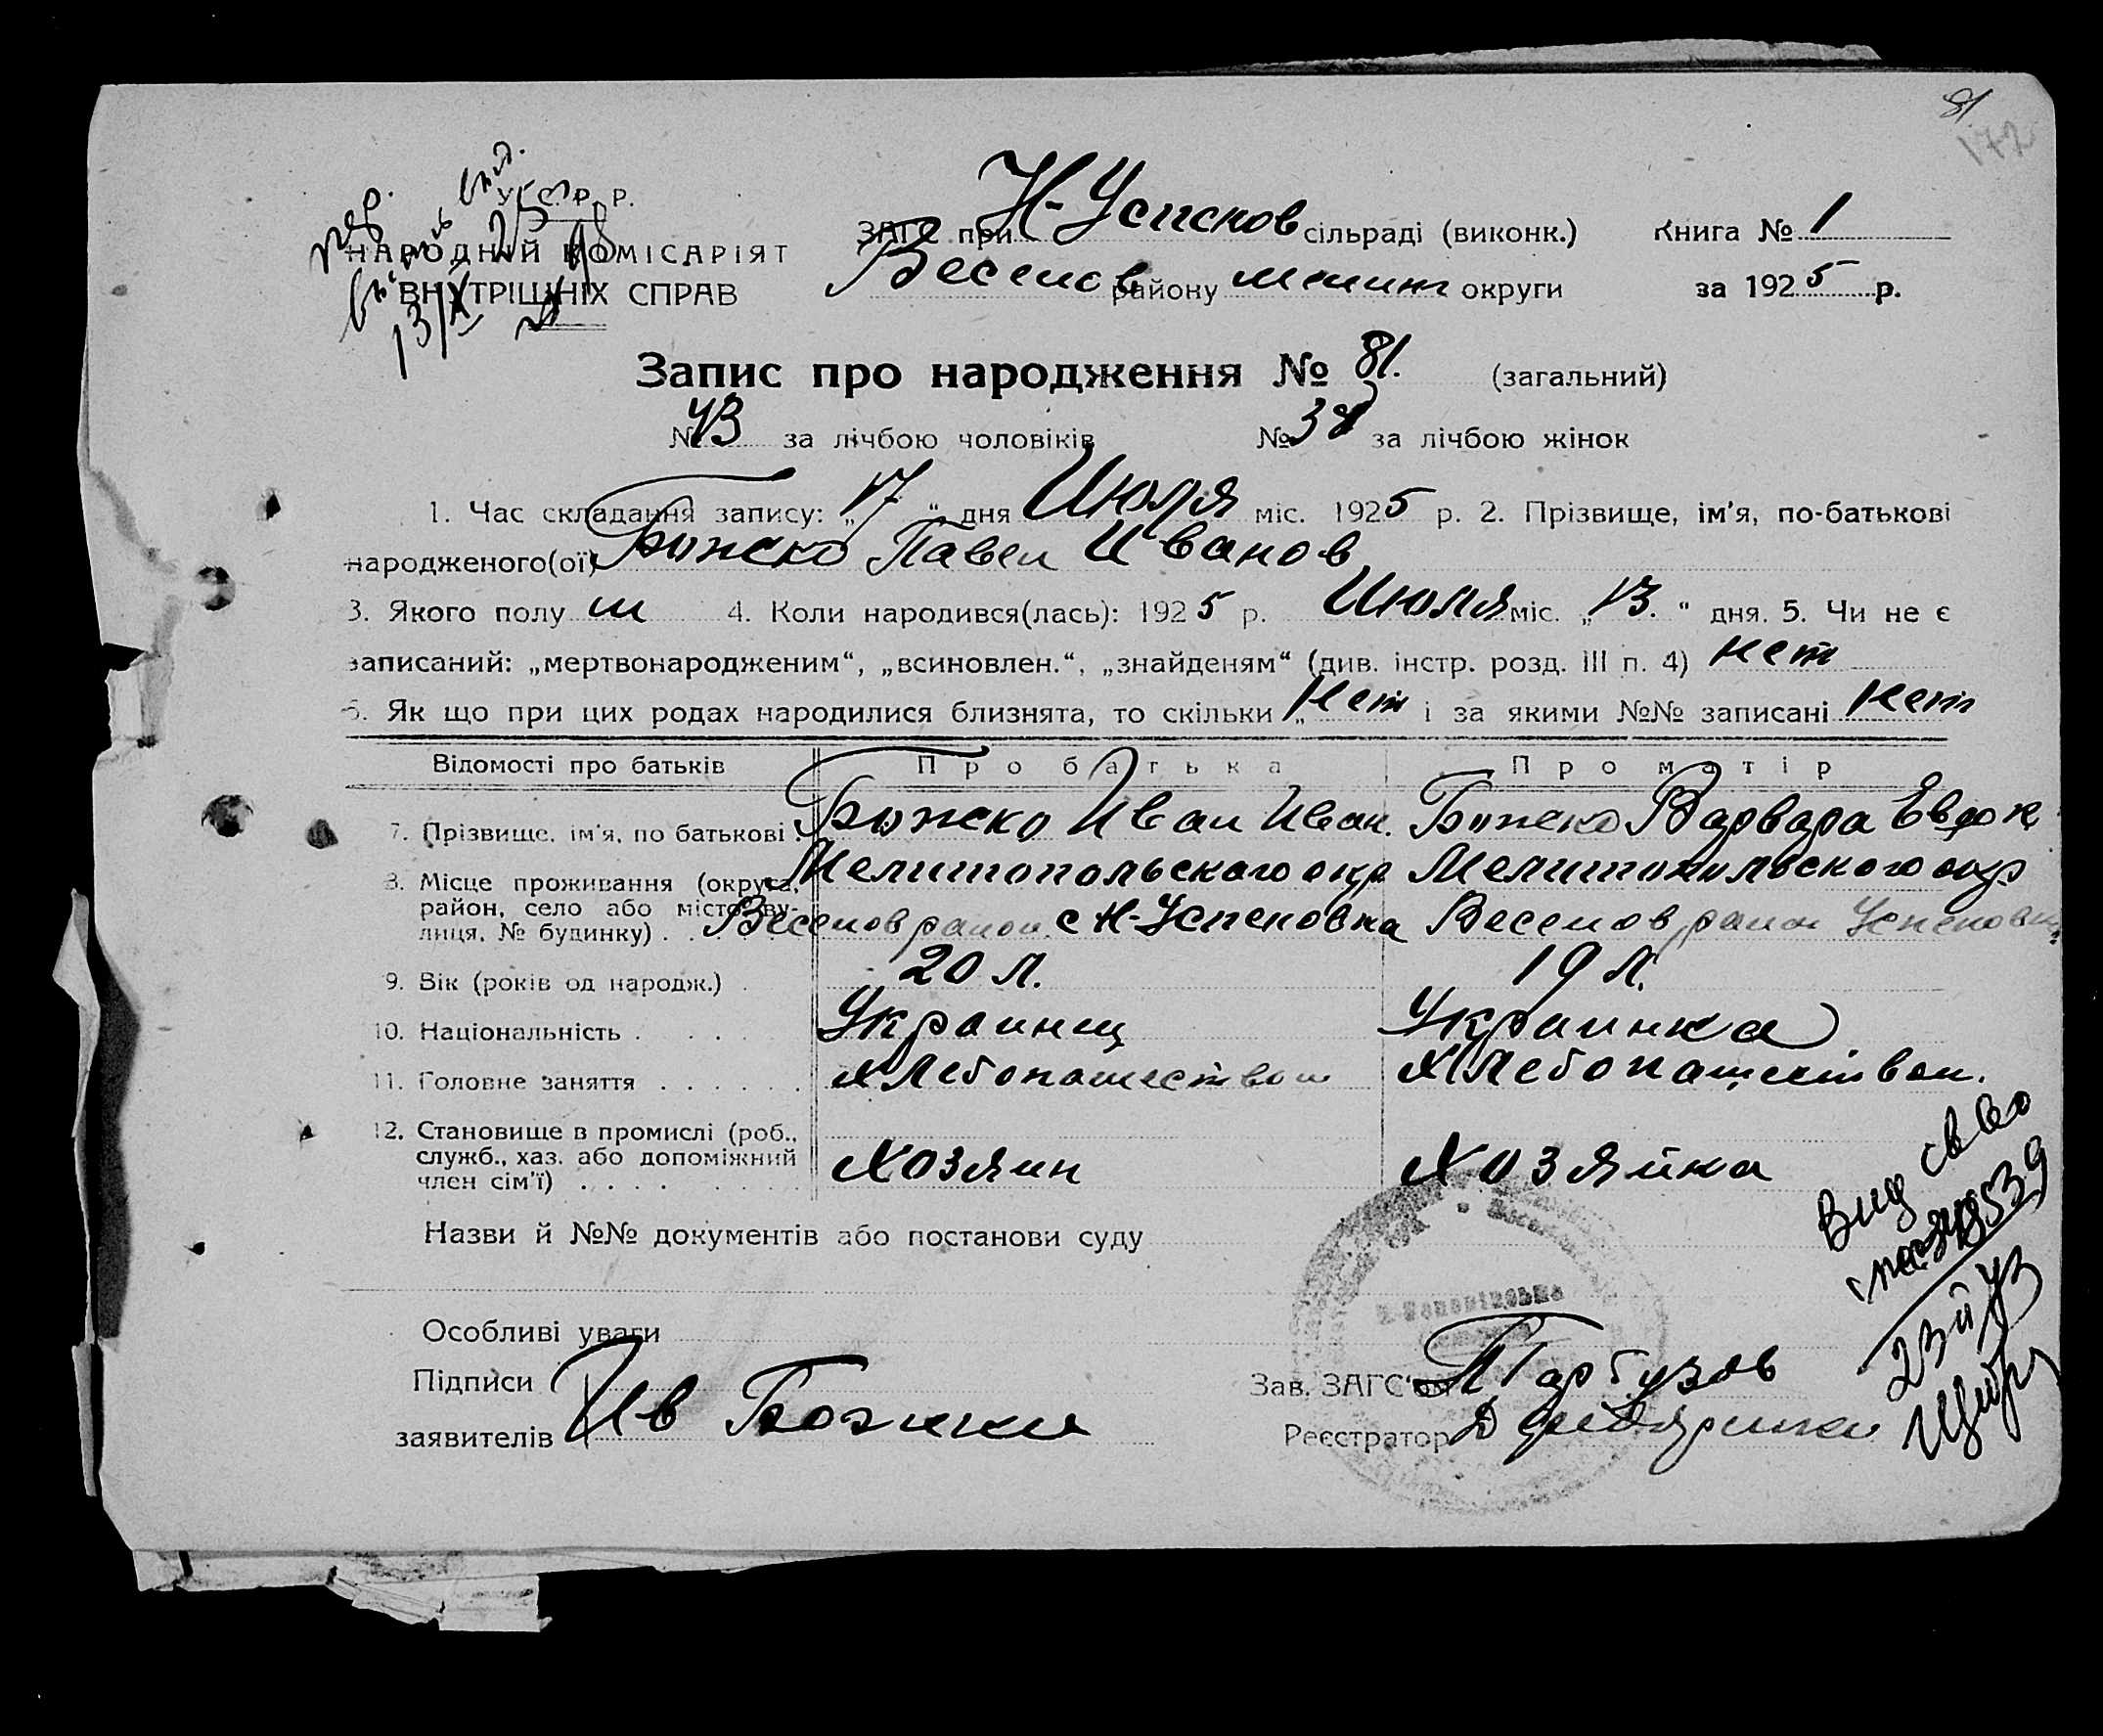 81
172
У. С. Р. Р.
НАРОДНИЙ КОМІСАРІЯТ
ВНУТРІШНІХ СПРАВ
ЗАГС при Н-Успенов сільраді (виконк.) Книга № 1
Веселов району округи за 1925 р.
Запис про народження № 81. (загальний)
№ 43 за лічбою чоловіків № 38 за лічбою жінок
1. Час складання запису: „17“ дня Июля міс. 1925 р. 2. Прізвище, ім'я, по-батькові
народженого(ої) Божско Павел Иванов
3. Якого полу м 4. Коли народився(лась): 1925 р. Июля міс. „13.“ дня. 5. Чи не є
записаний: „мертвонародженим“, „всиновлен.“, „знайденям“ (див. інстр. розд. III п. 4) нет
6. Як що при цих родах народилися близнята, то скільки „нет і за якими №№ записані нет
Відомості про батьків Про батька Про матір
7. Прізвище, ім'я, по батькові Божско Иван Иван. Божско Варвара Евдок
8. Місце проживання (округа, район, село або місто, ву- лиця, № будинку) Мелитопольскаго окр Мелитопольского окр
Веселов район с Н-Успеновка Веселов район Успеновка
9. Вік (років од народж.) 20 л. 19 л.
10. Національність Украинц Украинка
11. Головне заняття хлебопашеством хлебопашеством.
12. Становище в промислі (роб., служб., хаз. або допоміжний член сім'ї) хозяин хозяйка
Назви й №№ документів або постанови суду
Особливі уваги
Підписи
заявителів Ив Божки
Зав. ЗАГС'ом Гарбузов
Реєстратор
Выд св во